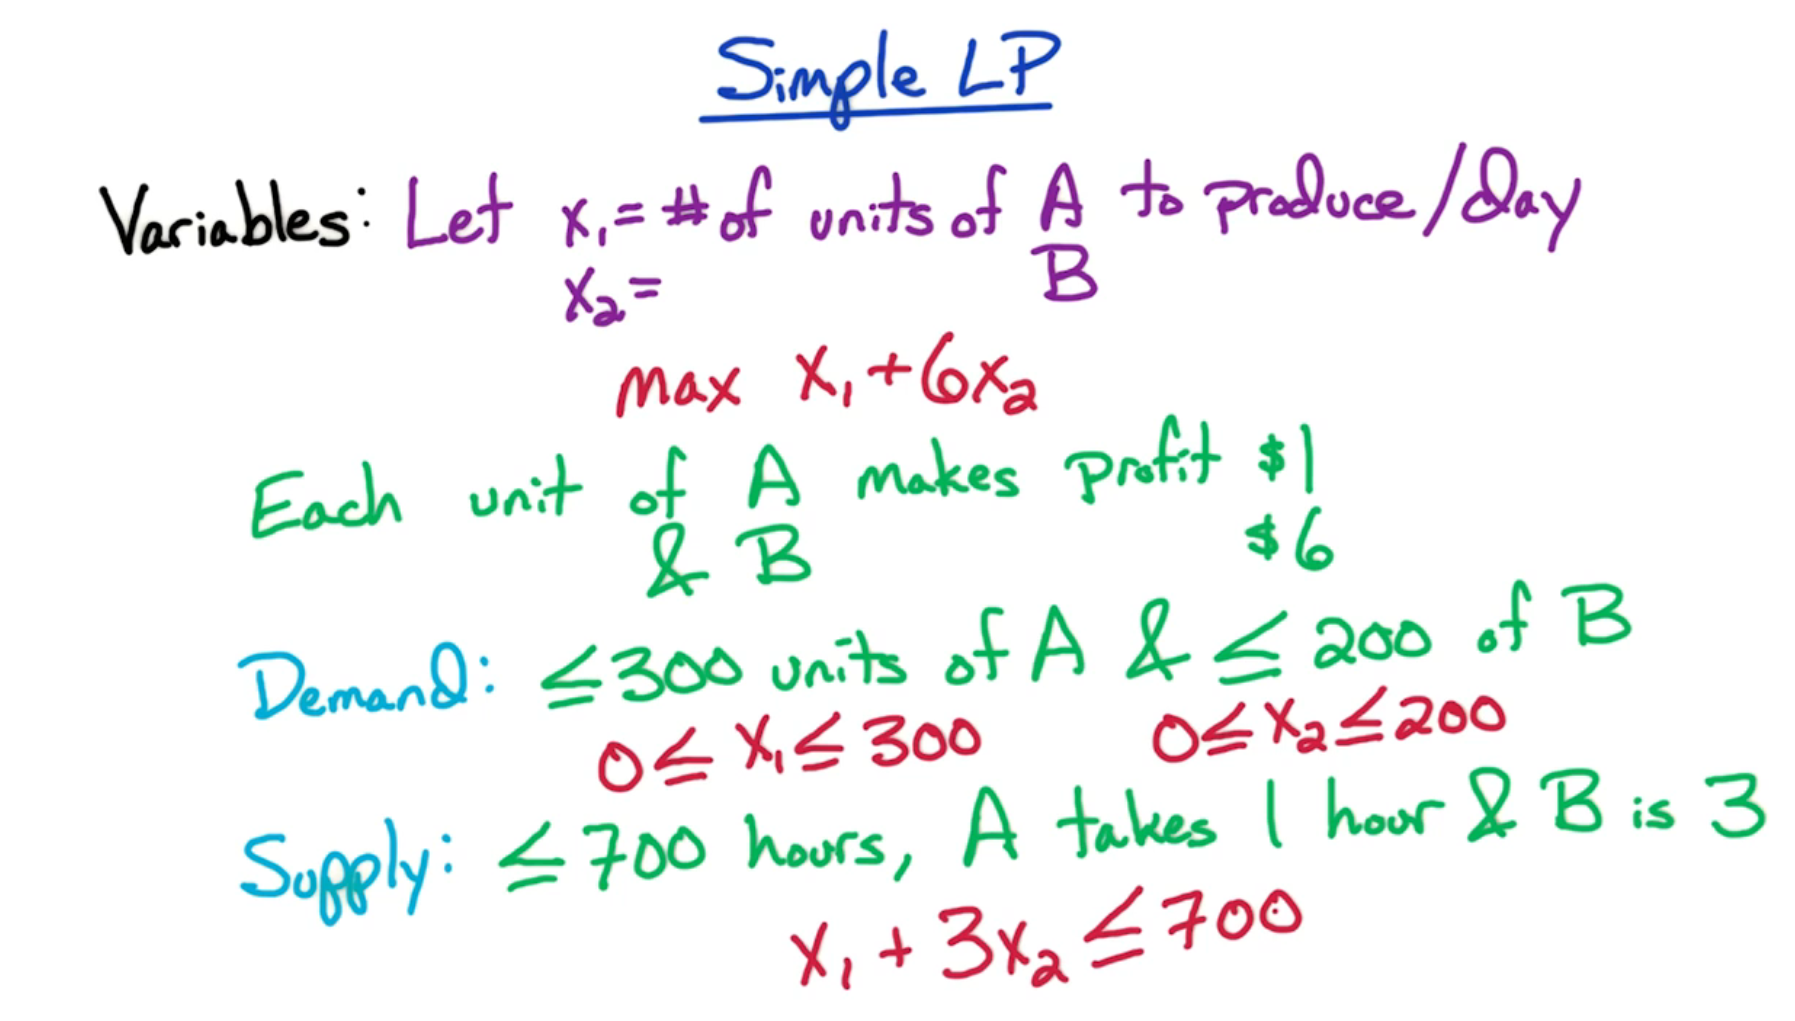 Simple LP
Variables: Let x₁ = # of units of A to produce/day
x₂ = B
max x₁ + 6x₂
Each unit of A makes profit $1
& B $6
Demand: ≤ 300 units of A & ≤ 200 of B
0 ≤ x₁ ≤ 300 0 ≤ x₂ ≤ 200
Supply: ≤ 700 hours, A takes 1 hour & B is 3
x₁ + 3x₂ ≤ 700